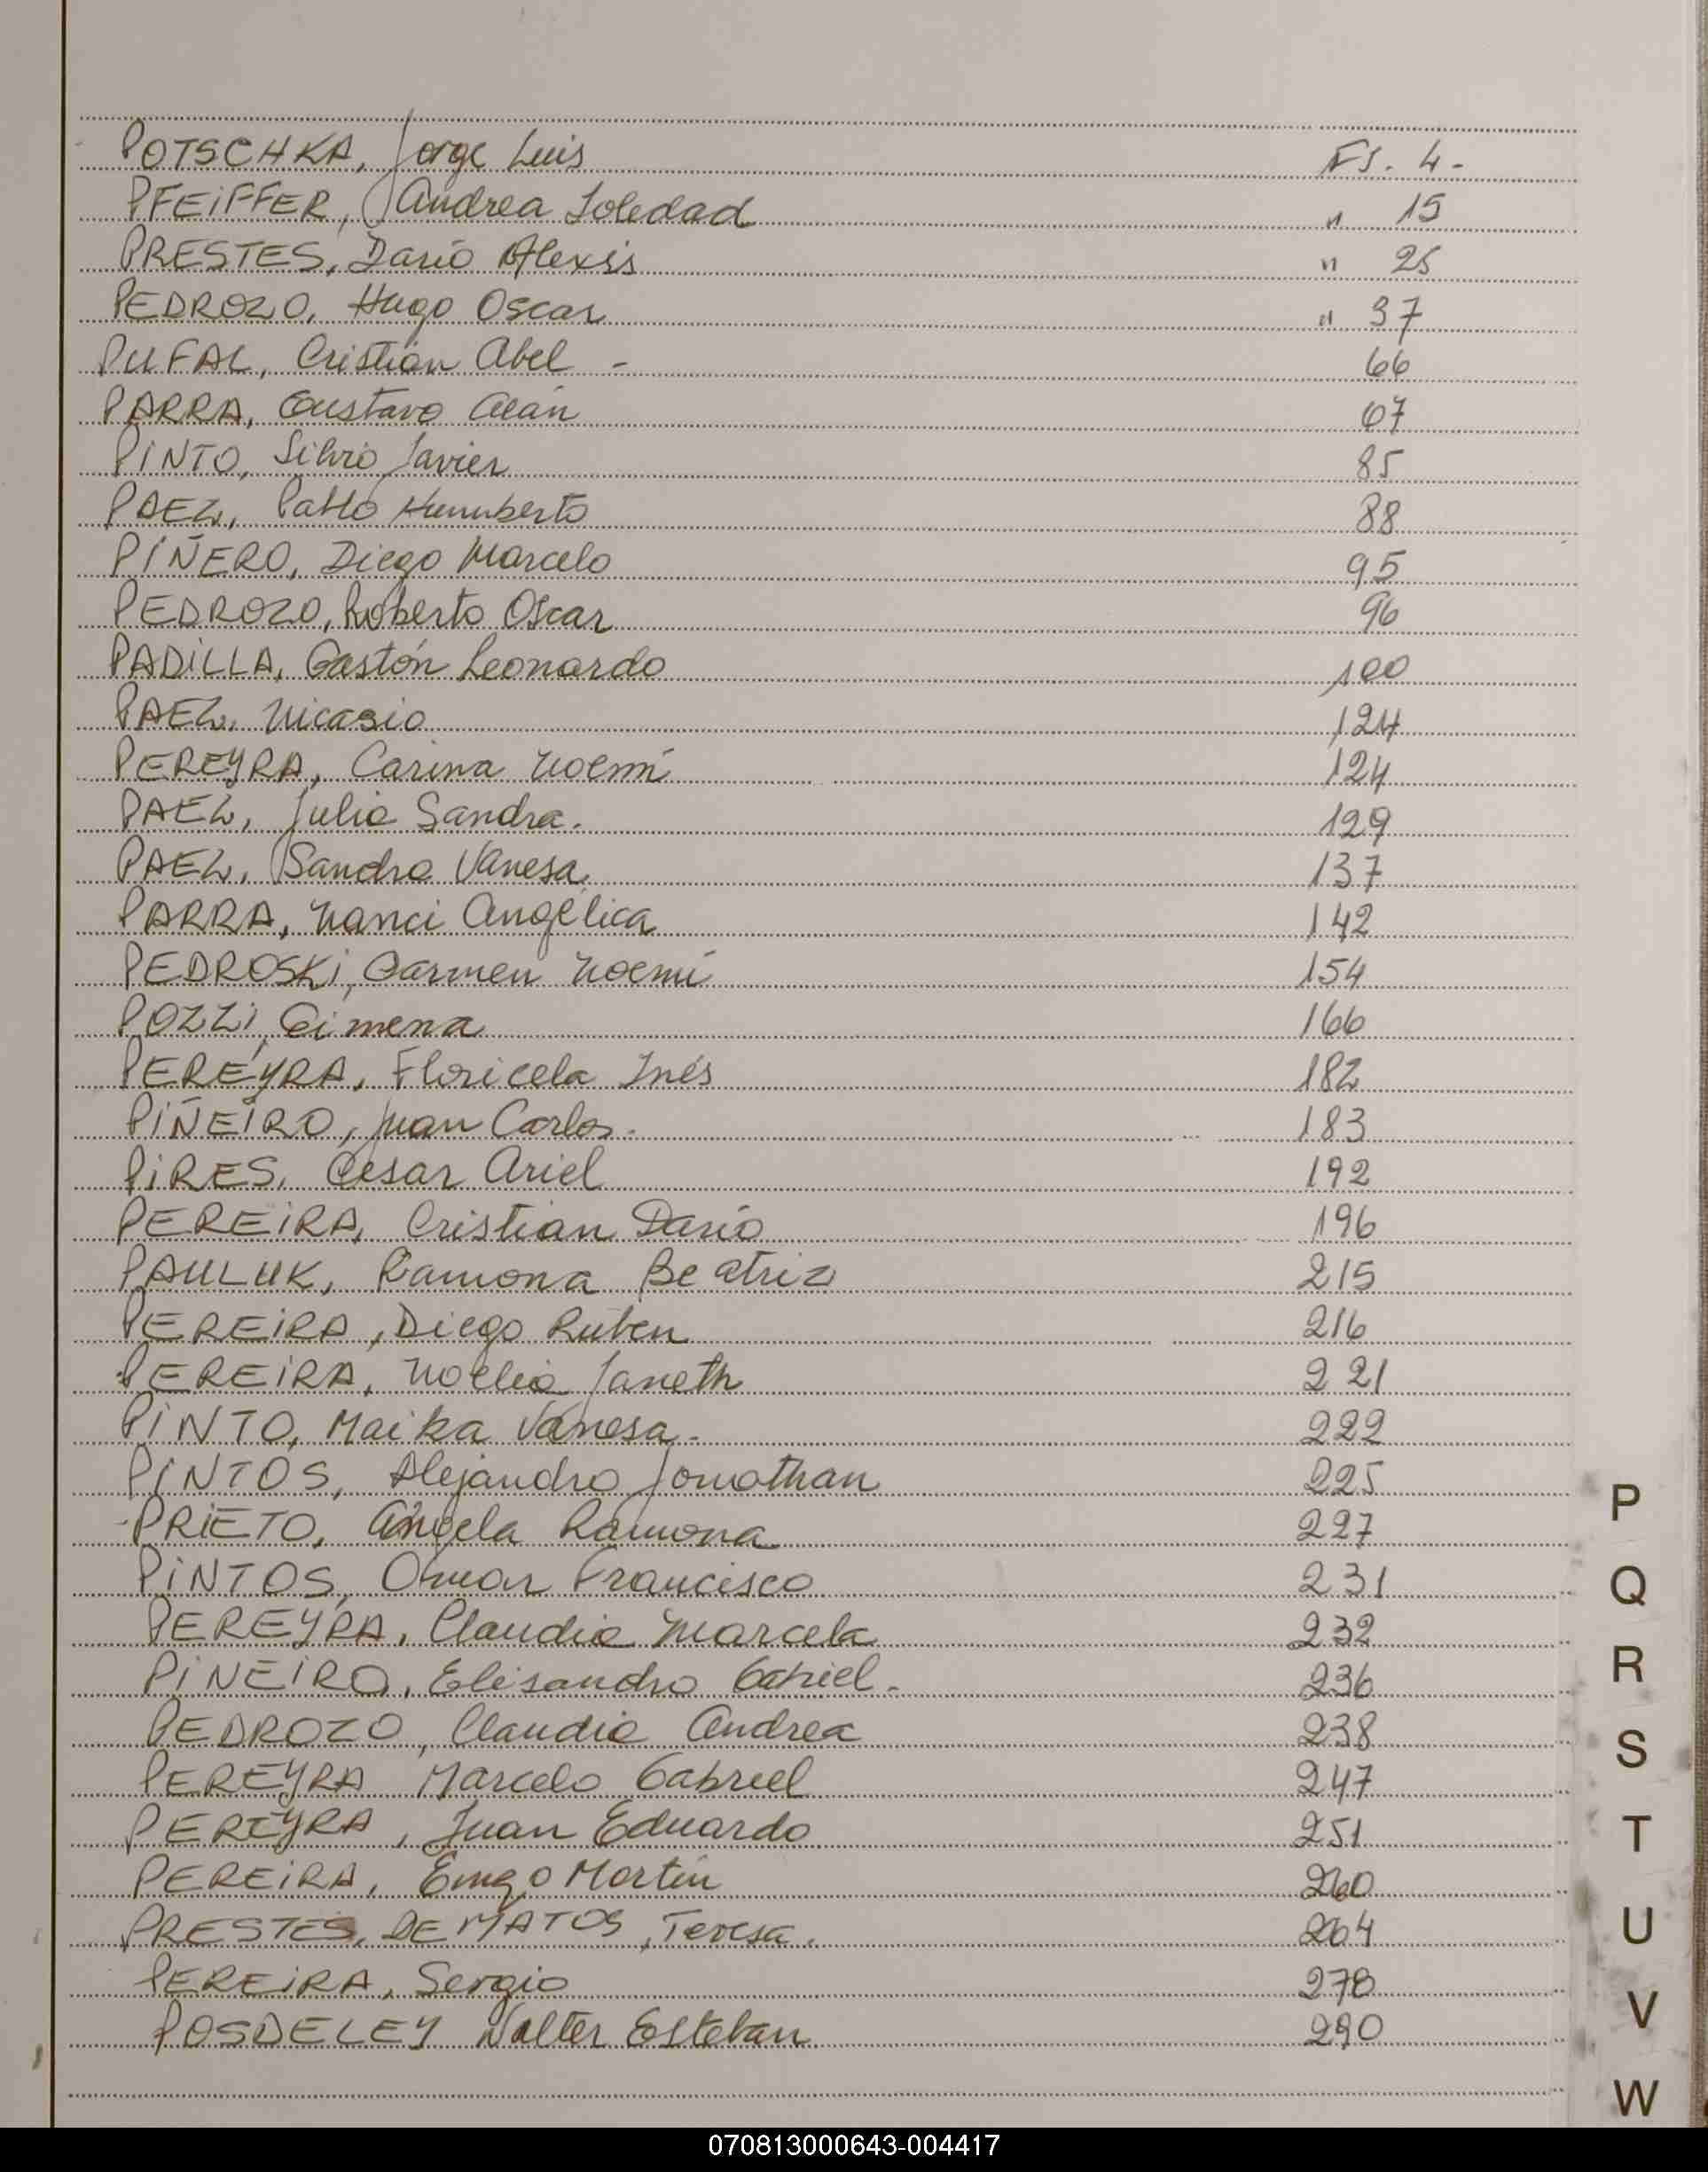 POTSCHKA, Jorge Luis Fs. 4.-
PFEiFFER, Andrea Soledad " 15
PRESTES, Darío Alexis " 25
PEDROZO, Hugo Oscar " 37
PUFAL, Cristian Abel - 66
PARRA, Gustavo Alan 67
PiNTO, Silvio Javier 85
PAEZ, Pablo Humberto 88
PIÑERO, Diego Marcelo 95
PEDROZO, Roberto Oscar 96
PADiLLA, Gastón Leonardo 100
PAEZ, Nicasio 124
PEREYRA, Carina Noemí 124
PAEZ, Julia Sandra. 129
PAEZ, Sandra Vanesa 137
PARRA, Nanci Angélica 142
PEDROSKi, Carmen Noemí 154
POZZi, Gimena 166
PEREYRA, Floricela Inés 182
PiÑEiRO, Juan Carlos. 183
PiRES, Cesar Ariel 192
PEREiRA, Cristian Darío 196
PAULUK, Ramona Beatriz 215
PEREiRA, Diego Rubén 216
PEREiRA, Noelia Janeth 221
PiNTO, Maika Vanesa. 222
PiNTOS, Alejandro Jonathan 225
PRiETO, Angela Ramona 227
PiNTOS, Omar Francisco 231
PEREYRA, Claudia Marcela 232
PiNEiRO, Elisandro Gabriel. 236
PEDROZO, Claudia Andrea 238
PEREYRA Marcelo Gabriel 247
PEREYRA, Juan Eduardo 251
PEREiRA, Martín 260
PRESTES, DE MATOS, Teresa. 264
PEREiRA, Sergio 278
POSDELEY Walter Esteban 290
P
Q
R
S
T
U
V
W
070813000643-004417